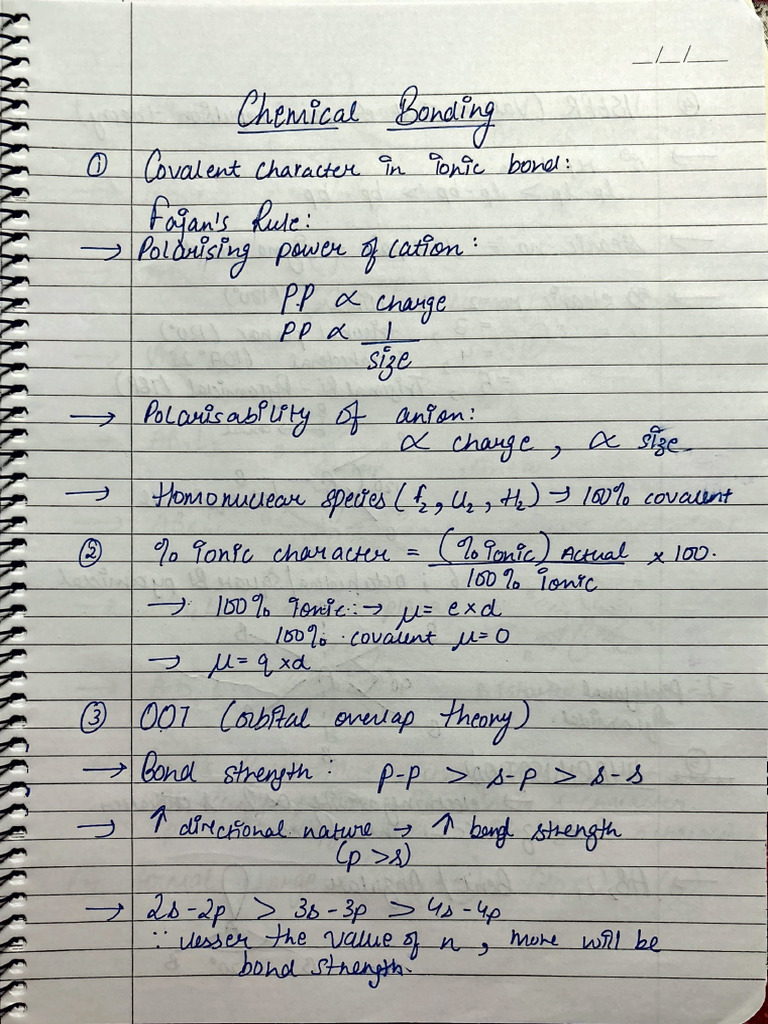 _/_/___
Chemical Bonding
① Covalent character in ionic bond:
Fajan's Rule:
→ Polarising power of cation:
P.P ∝ charge
PP ∝ 1
size
→ Polarisability of anion:
∝ charge, ∝ size
→ Homonuclear species (F₂, Cl₂, H₂) → 100% covalent
② % ionic character = (% ionic) Actual × 100.
100% ionic
→ 100% ionic: → μ = e×d
100% covalent μ=0
→ μ = q×d
③ OOT (orbital overlap theory)
→ Bond strength: p-p > s-p > s-s
→ ↑ directional nature → ↑ bond strength
(p>s)
→ 2s-2p > 3s-3p > 4s-4p
∵ lesser the value of n, more will be
bond strength.